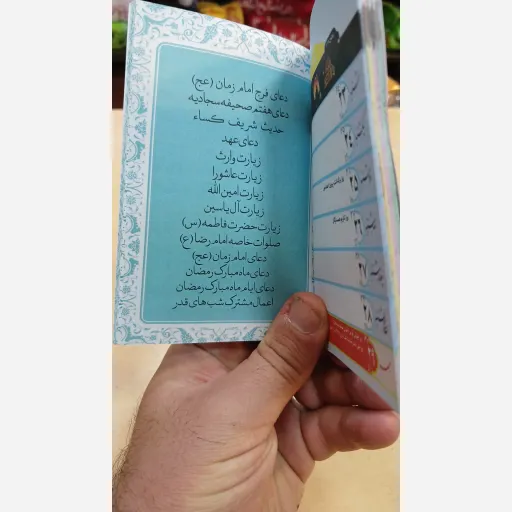 دعای فرج امام زمان (عج)
دعای هفتم صحیفه سجادیه
حدیث شریف کساء
دعای عهد
زیارت وارث
زیارت عاشورا
زیارت امین الله
زیارت آل یاسین
زیارت حضرت فاطمه (س)
صلوات خاصه امام رضا (ع)
دعای امام زمان (عج)
دعای ماه مبارک رمضان
دعای ایام ماه مبارک رمضان
اعمال مشترک شب های قدر
۲۳
۲۴
۲۵
۲۶
۲۷
۲۸